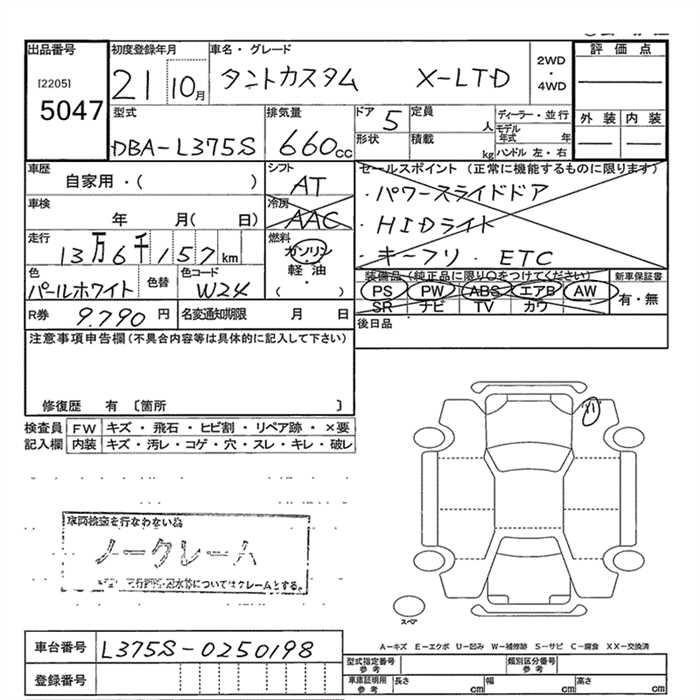 出品番号 初度登録年月 車名・グレード 2WD・4WD 評価点
[2205]
5047 21 10月 タントカスタム X-LTD
型式 排気量 ドア 5 定員 人 ディーラー・並行 外装 内装
DBA-L375S 660cc 形状 積載 kg モデル年式 年 ハンドル 左・右
車歴 シフト セールスポイント (正常に機能するものに限ります)
自家用・( ) AT ・パワースライドドア
車検 冷房 ・HIDライト
年 月( 日) AAC
走行 燃料 ・キーフリ・ETC
13万6千157km ガソリン
軽油
・( )
色 色替 色コード 装備品 (純正品に限り○をつけてください) 新車保証書
パールホワイト W24 PS PW ABS エアB AW 有・無
SR ナビ TV カワ
R券 9.790円 名変通知期限 月 日 後日品
注意事項申告欄(不具合内容等は具体的に記入して下さい)
修復歴 有 〔箇所 〕
検査員 FW キズ・飛石・ヒビ割・リペア跡・×要
記入欄 内装 キズ・汚レ・コゲ・穴・スレ・キレ・破レ
車両検査を行なわない為
ノークレーム
スペア
A-キズ E-エクボ U-凹み W-補修跡 S-サビ C-腐食 XX-交換済
車台番号 L375S-0250198
登録番号
型式指定番号 参考 類別区分番号 参考
車庫証明用 参考 長さ cm 幅 cm 高さ cm